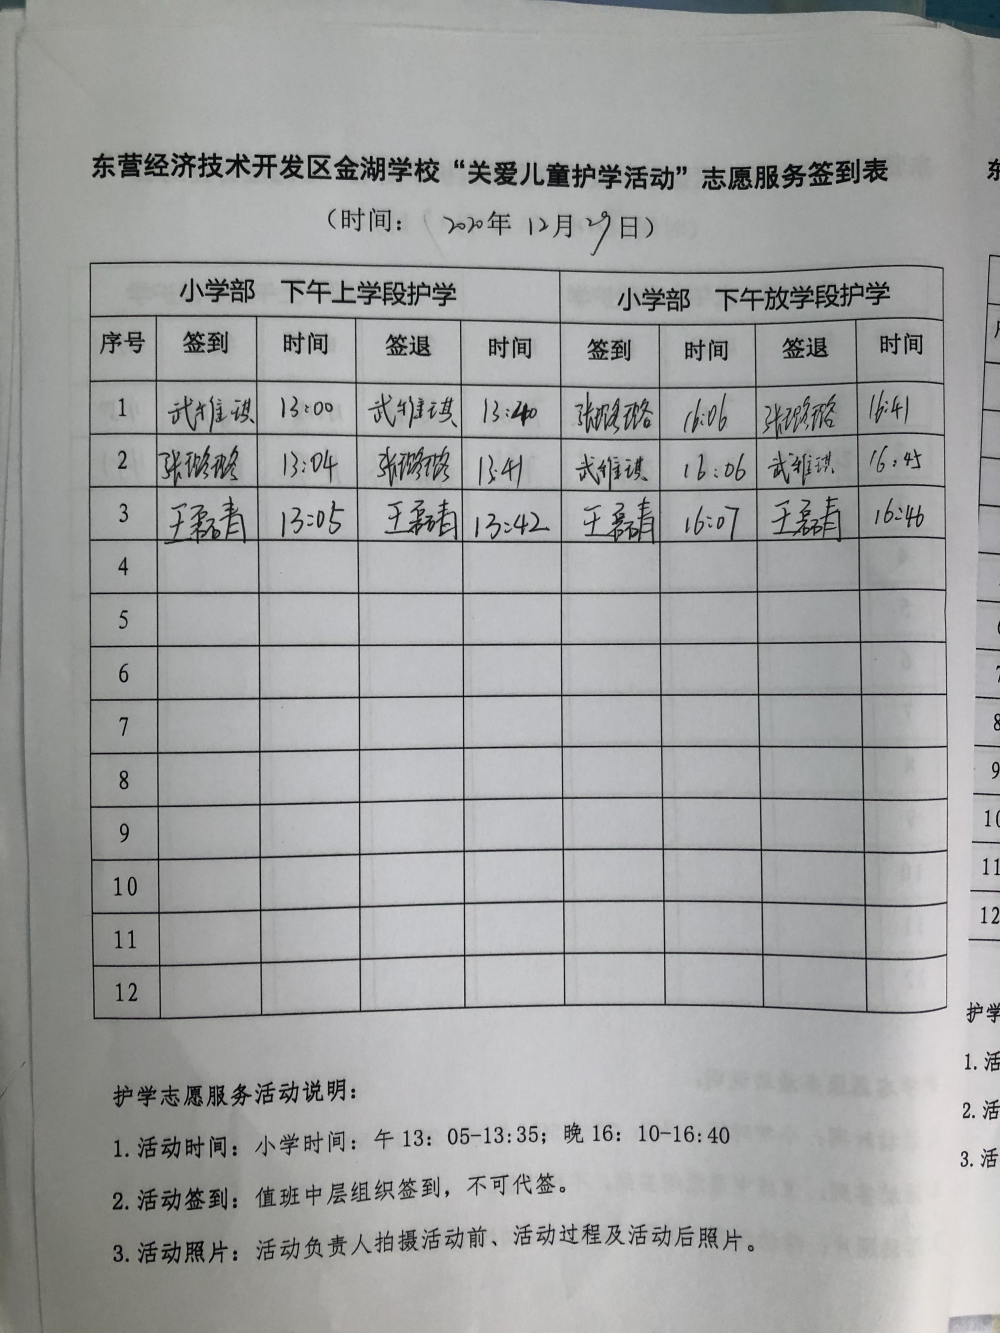 东营经济技术开发区金湖学校“关爱儿童护学活动”志愿服务签到表
（时间： 2020年 12月29日）
小学部 下午上学段护学 小学部 下午放学段护学
序号 签到 时间 签退 时间 签到 时间 签退 时间
1 武维琪 13:00 武维琪 13:40 张璐璐 16:06 张璐璐 16:41
2 张璐璐 13:04 张璐璐 13:41 武维琪 16:06 武维琪 16:45
3 王磊青 13:05 王磊青 13:42 王磊青 16:07 王磊青 16:46
4
5
6
7
8
9
10
11
12
护学志愿服务活动说明：
1.活动时间：小学时间：午13：05-13:35；晚16：10-16:40
2.活动签到：值班中层组织签到，不可代签。
3.活动照片：活动负责人拍摄活动前、活动过程及活动后照片。
东
7
8
9
10
11
12
护学
1.活
2.活
3.活